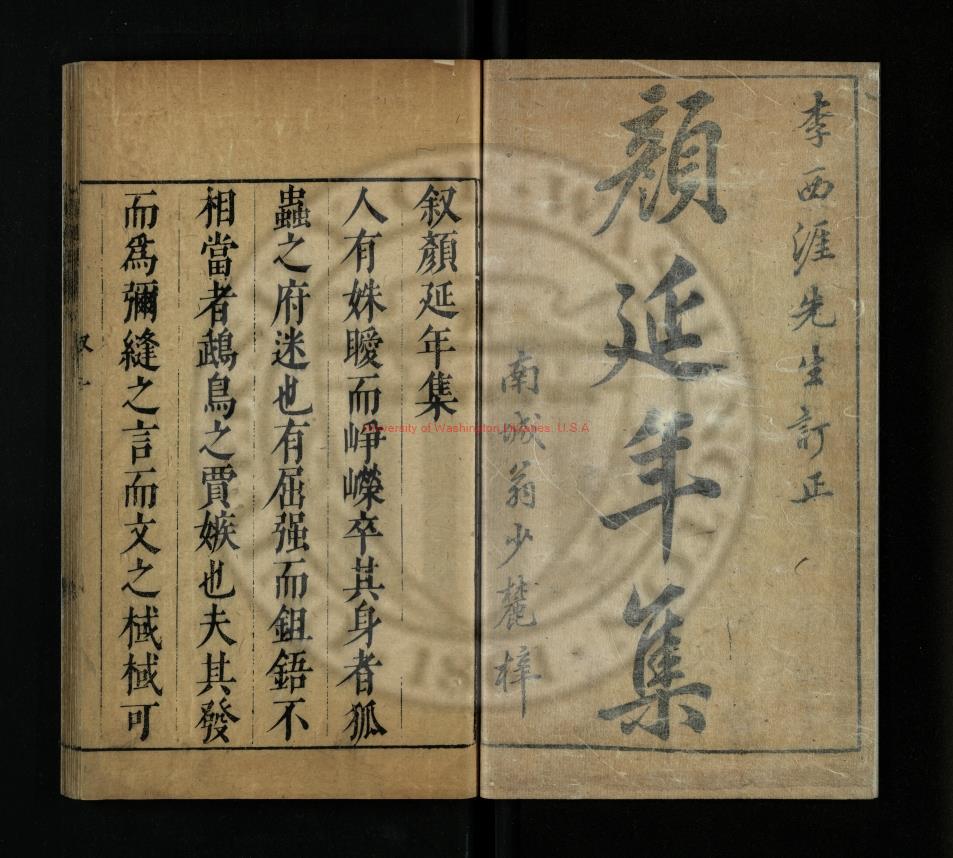 李西涯先生訂正
顏延年集
南城翁少麓梓
叙顏延年集
人有姝曖而崢嶸卒其身者狐
蟲之府迷也有屈强而鉏鋙不
相當者鵡鳥之賈嫉也夫其發
而爲彌縫之言而文之棫棫可
叙
University of Washington Libraries, U.S.A